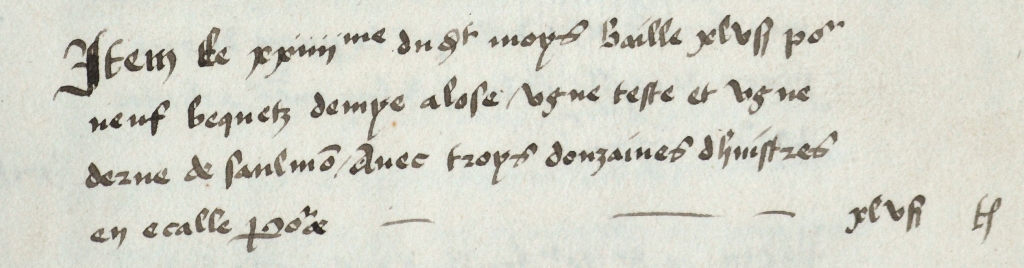 Item le xxiiii me dudt moys baille xlv s por
neuf bequetz dempe alose / ugne teste et ugne
derne de saulmo / Avec troys douzaines dhuistres
en ecalle por ce xlv s ts